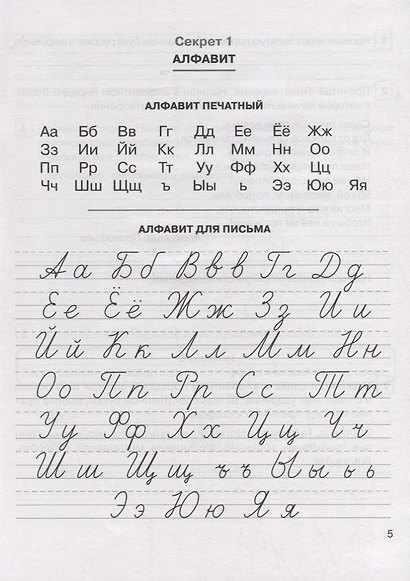 Секрет 1
АЛФАВИТ
АЛФАВИТ ПЕЧАТНЫЙ
Аа Бб Вв Гг Дд Ее Ёё Жж
Зз Ии Йй Кк Лл Мм Нн Оо
Пп Рр Сс Тт Уу Фф Хх Цц
Чч Шш Щщ ъ Ыы ь Ээ Юю Яя
АЛФАВИТ ДЛЯ ПИСЬМА
Аа Бб Ввв Гг Дд
Ее Ёё Жж Зз Ии
Йй Кк Лл Мм Нн
Оо Пп Рр Сс Тт
Уу Фф Хх Цц Чч
Шш Щщ ъъ Ыы ьь
Ээ Юю Яя
5